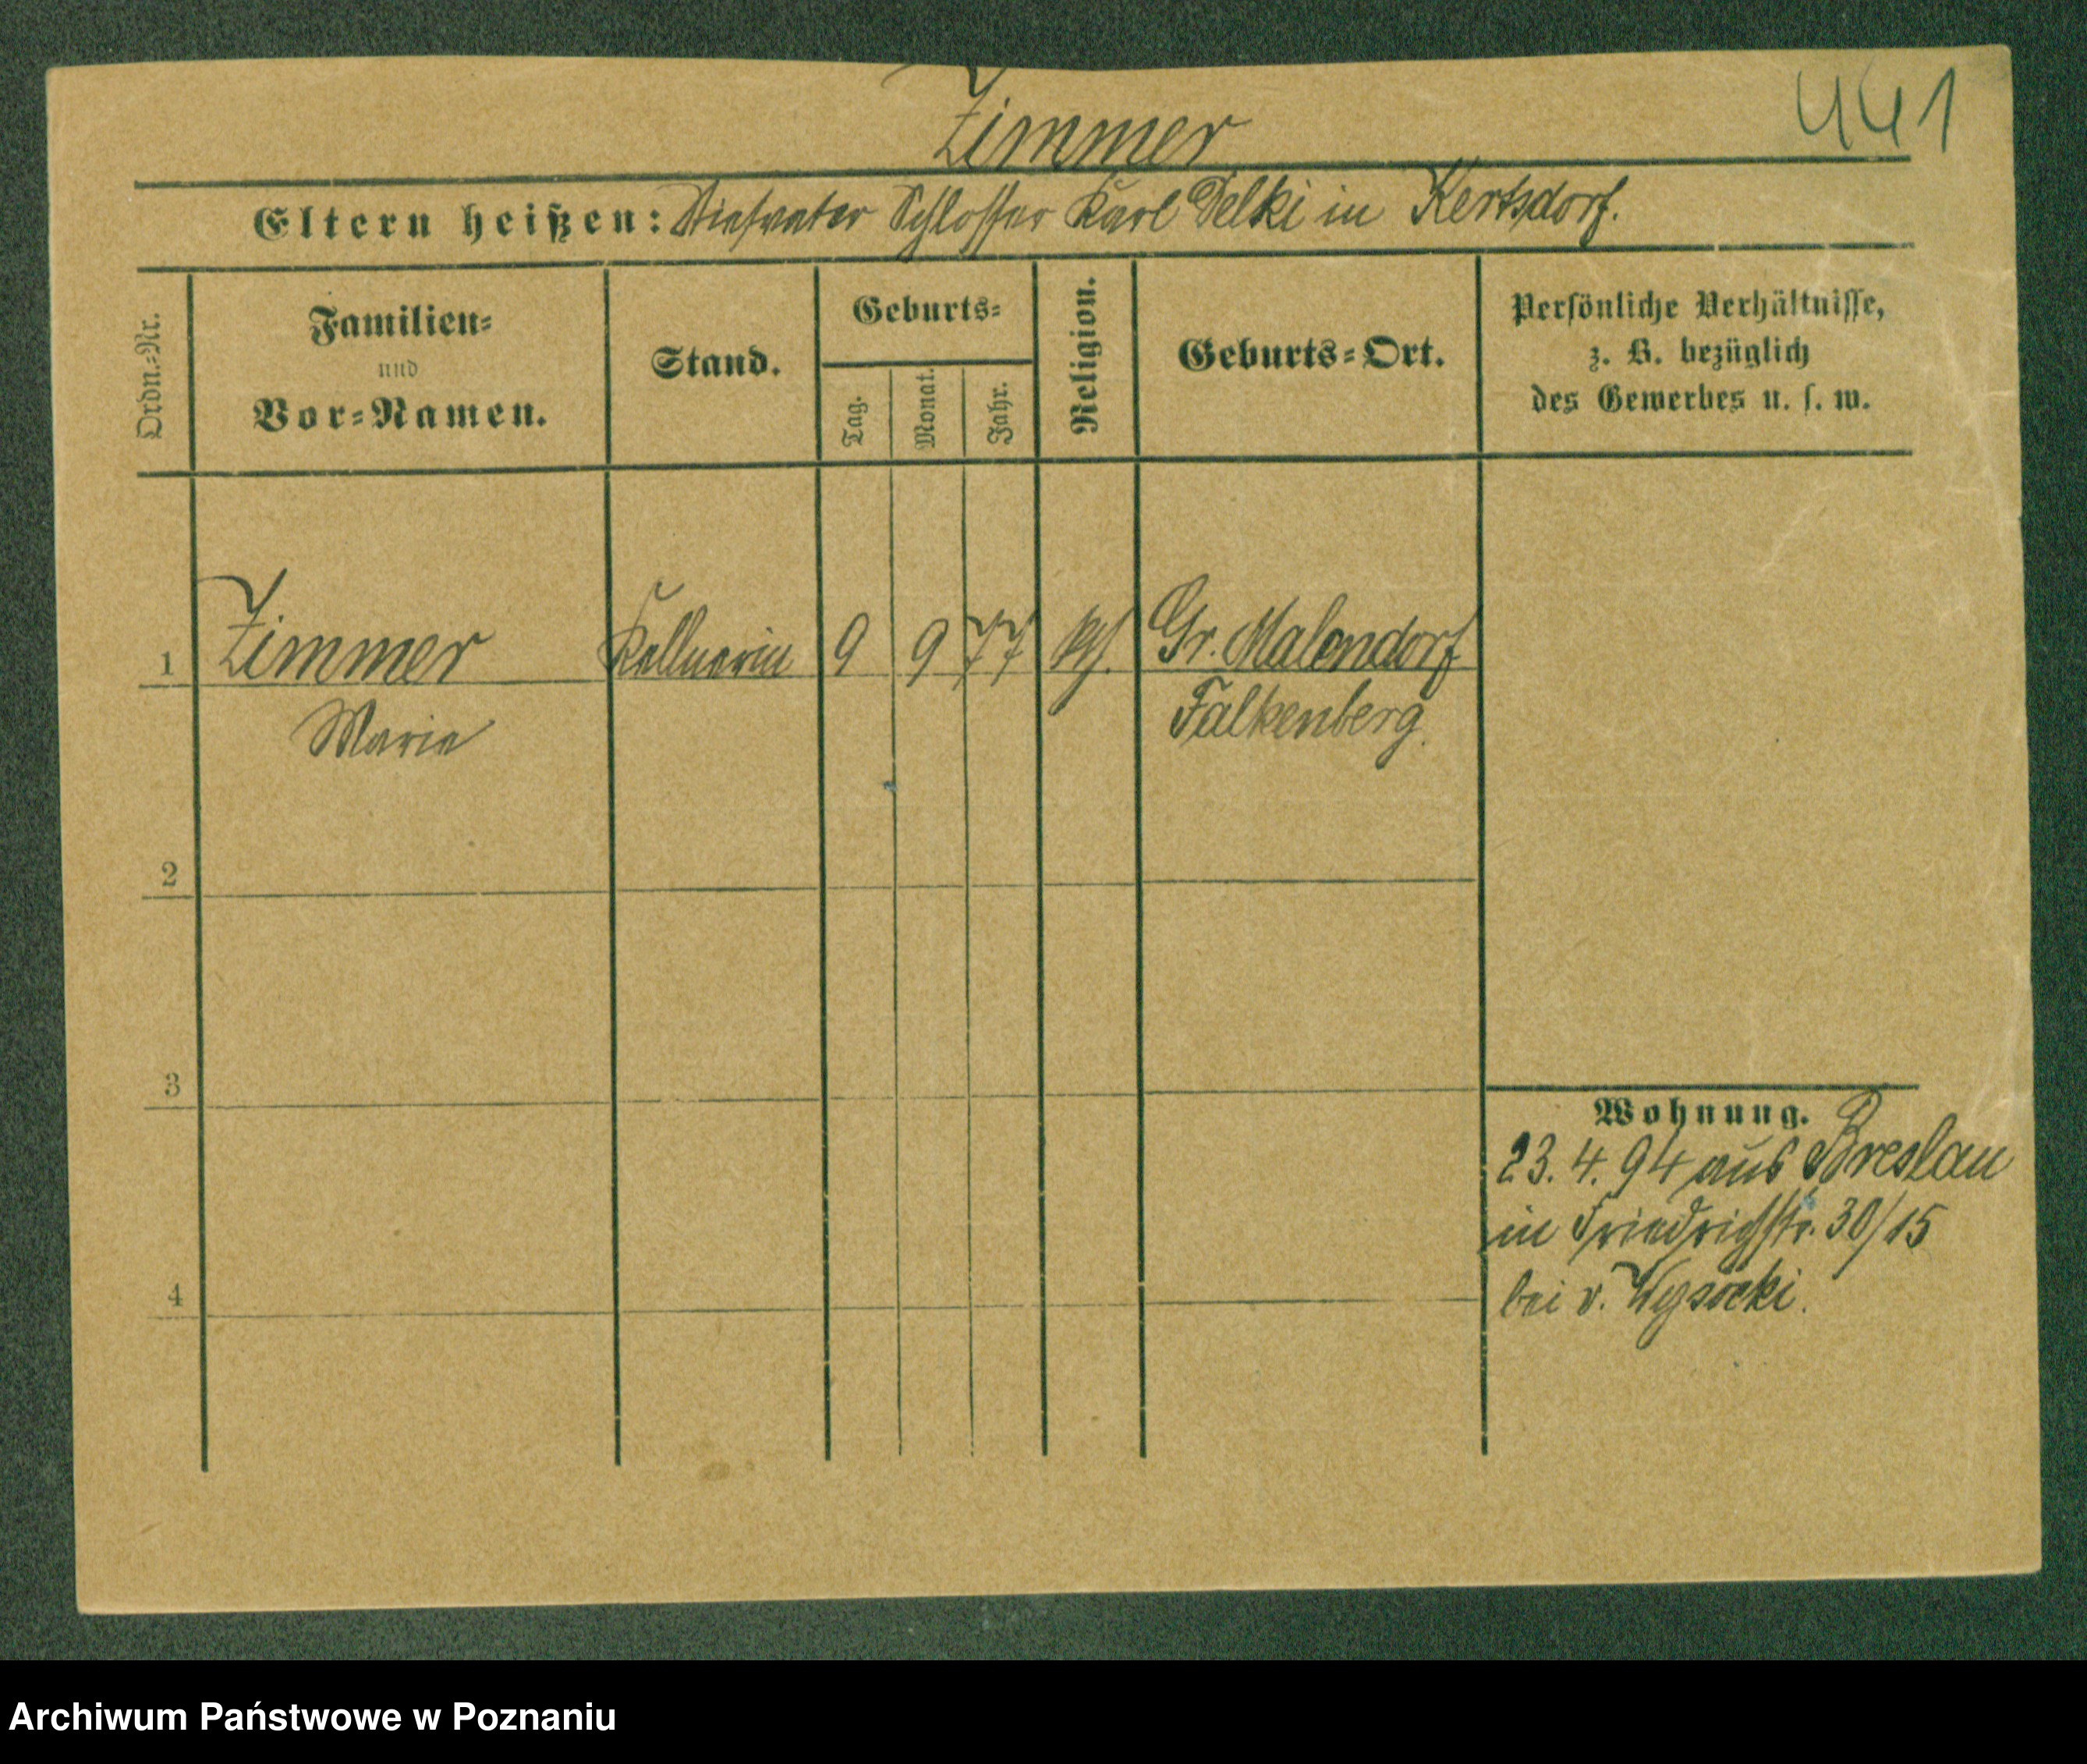 441
Zimmer
Eltern heißen: Stiefvater Schlosser Karl Delki in Kertsdorf.
Ordn.-Nr.
Familien-
und
Vor-Namen.
Stand.
Geburts-
Tag.
Monat.
Jahr.
Religion.
Geburts-Ort.
Persönliche Verhältnisse,
z. B. bezüglich
des Gewerbes u. s. w.
1 Zimmer Kellnerin 9 9 77 kth. Gr. Malendorf
Marie Falkenberg.
2
3
4
Wohnung.
23. 4. 94 aus Breslau
in Friedrichstr. 30/15
bei v. Wysocki.
Archiwum Państwowe w Poznaniu